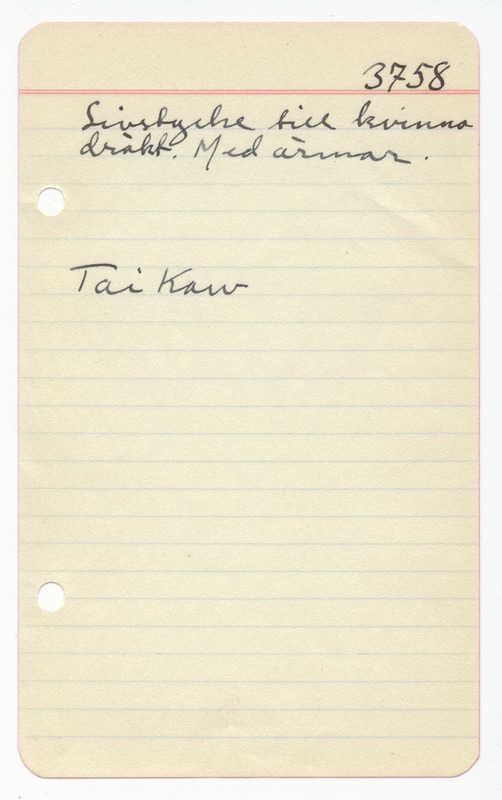 3758
Livstycke till kvinno
dräkt. Med ärmar.
Tai Kaw